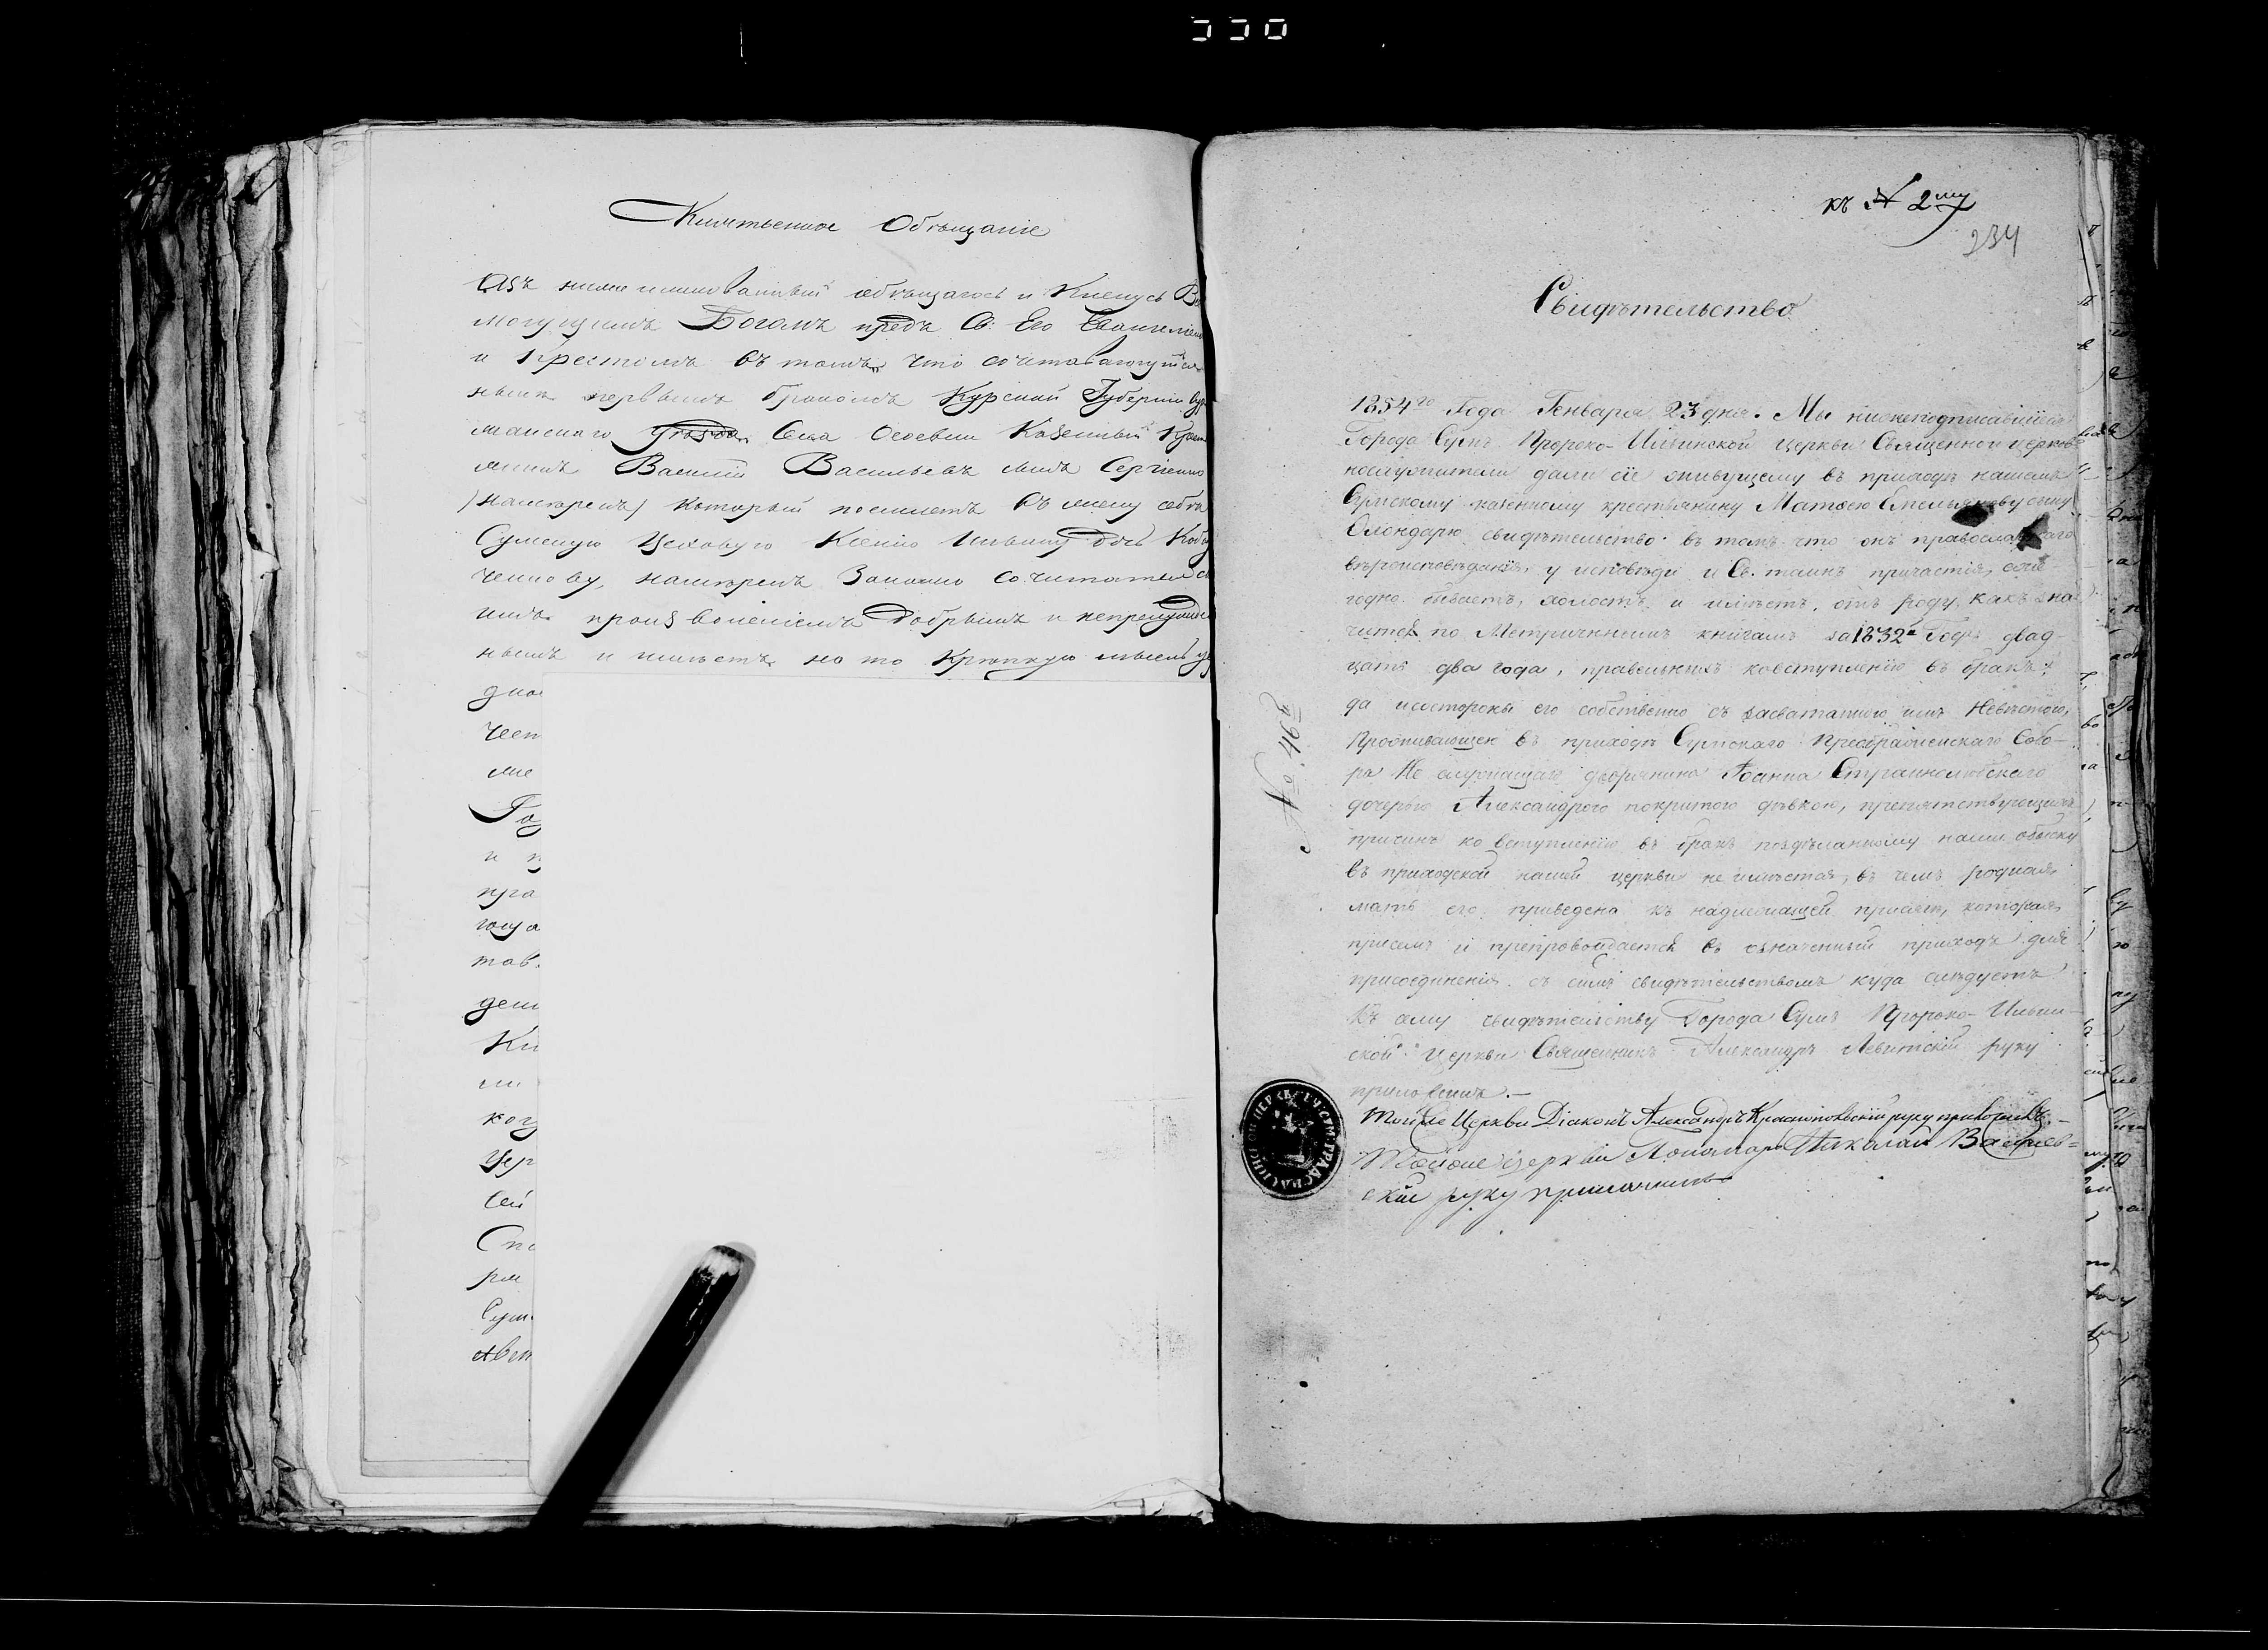 Клятвенное Обѣщаніе
Азъ нижеименованный обѣщаюсь и Кленусь Все
могущимъ Богомъ предъ Св: Его Евангеліем
и Крестомъ въ томъ, что сочетавающійся
нынѣ первымъ бракомъ Курской Губерніи Суд
жанскаго уѣзда, Села Осоевки Казенный Крест
янинъ Василій Васильевъ сынъ Сергіенко
который поемлетъ въ жену себѣ
Сумскую Цеховую Ксенію дочь
намѣренъ Законно сочитатися съ
нимъ произволеніемъ добрымъ и непренужде
нымъ и имѣетъ на то крѣпкую мысль
дно
чест
ме
и п
пра
юща
тав
ден
Кл
ли
ког
Цер
сей
Спа
Сум
къ № 2му
234
Свидѣтельство
1854го Года Генваря 23 дня. Мы нижеподписавшіеся
Города Сумъ Пророко-Ильинской церкви Священно и церков
нослужители дали сіе живущему въ приходѣ нашемъ
Сумскому казенному крестьянину Матѳею Емельянову сыну
Олондарю свидѣтельство въ томъ что онъ православнаго
вѣроисповѣданія, у исповѣди и Св. таинъ причастія еже
годно бываетъ, холостъ и имѣетъ отъ роду, какъ зна
чится по Метрическимъ книгамъ за 1832й Годъ двад-
цать два года, правильныхъ ковступленію въ бракъ;
да исостороны его собственно съ засватанною имъ Невѣстою,
Проживающей въ приходѣ Сумскаго Преображенскаго Собо-
ра Не служащаго дворянина Іоанна Страннолюбскаго
дочерью Александрою покритою дѣвкою, препятствующихъ
причинъ ко вступленію въ бракъ поздѣланному нами обыску
въ приходской нашей церкви не имѣется, въ чемъ родная
мать его приведена къ надлежащей присягѣ, которая
присемъ и препровождается въ означенный приходъ для
присоединенія съ симъ свидѣтельствомъ куда слѣдуетъ
Къ сему свидѣтельству Города Сумъ Пророко-Ильин-
ской Церкви Священникъ Александръ Левитскій руку
приложилъ.-
Тойже Церкви Діаконъ Александръ Краснопольскій руку приложилъ.-
Тойже церкви Пономарь Николай
скій руку приложилъ
№. 46й